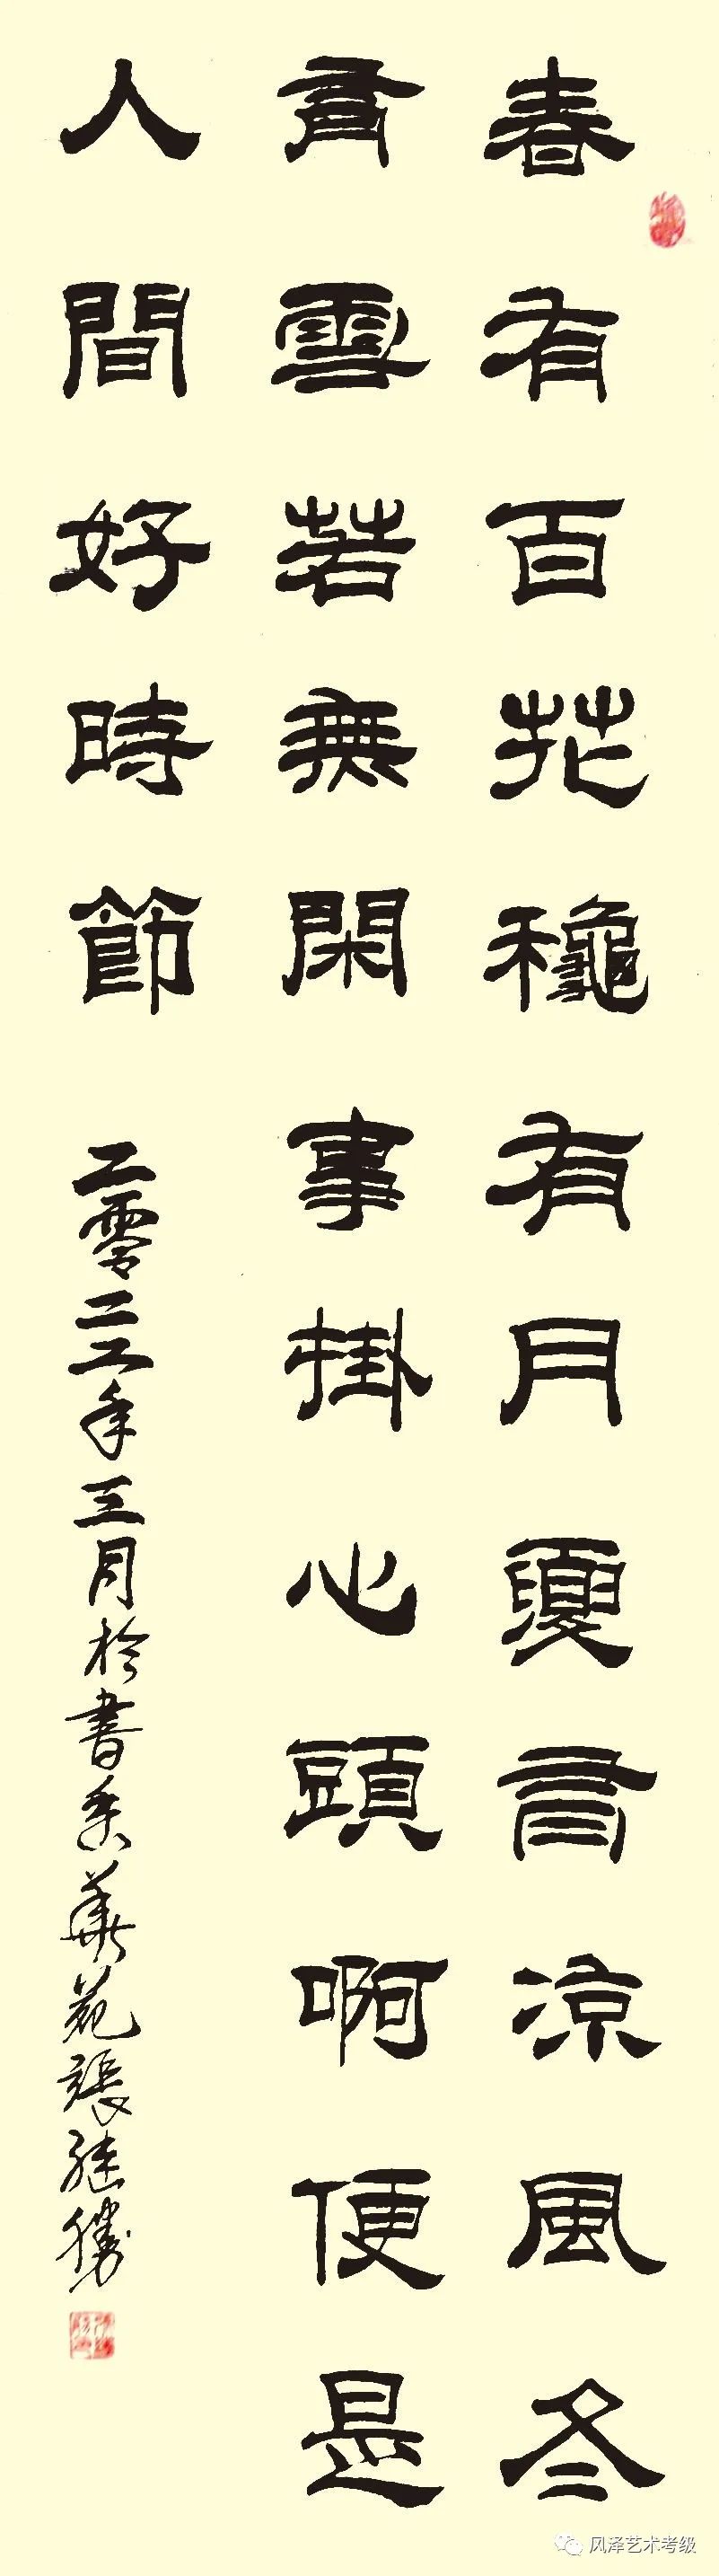 春有百花龝有月夏有凉風冬
有雪若無閑事掛心頭啊便是
人間好時節
二零二二年三月於書香華苑張继勝
风泽艺术考级